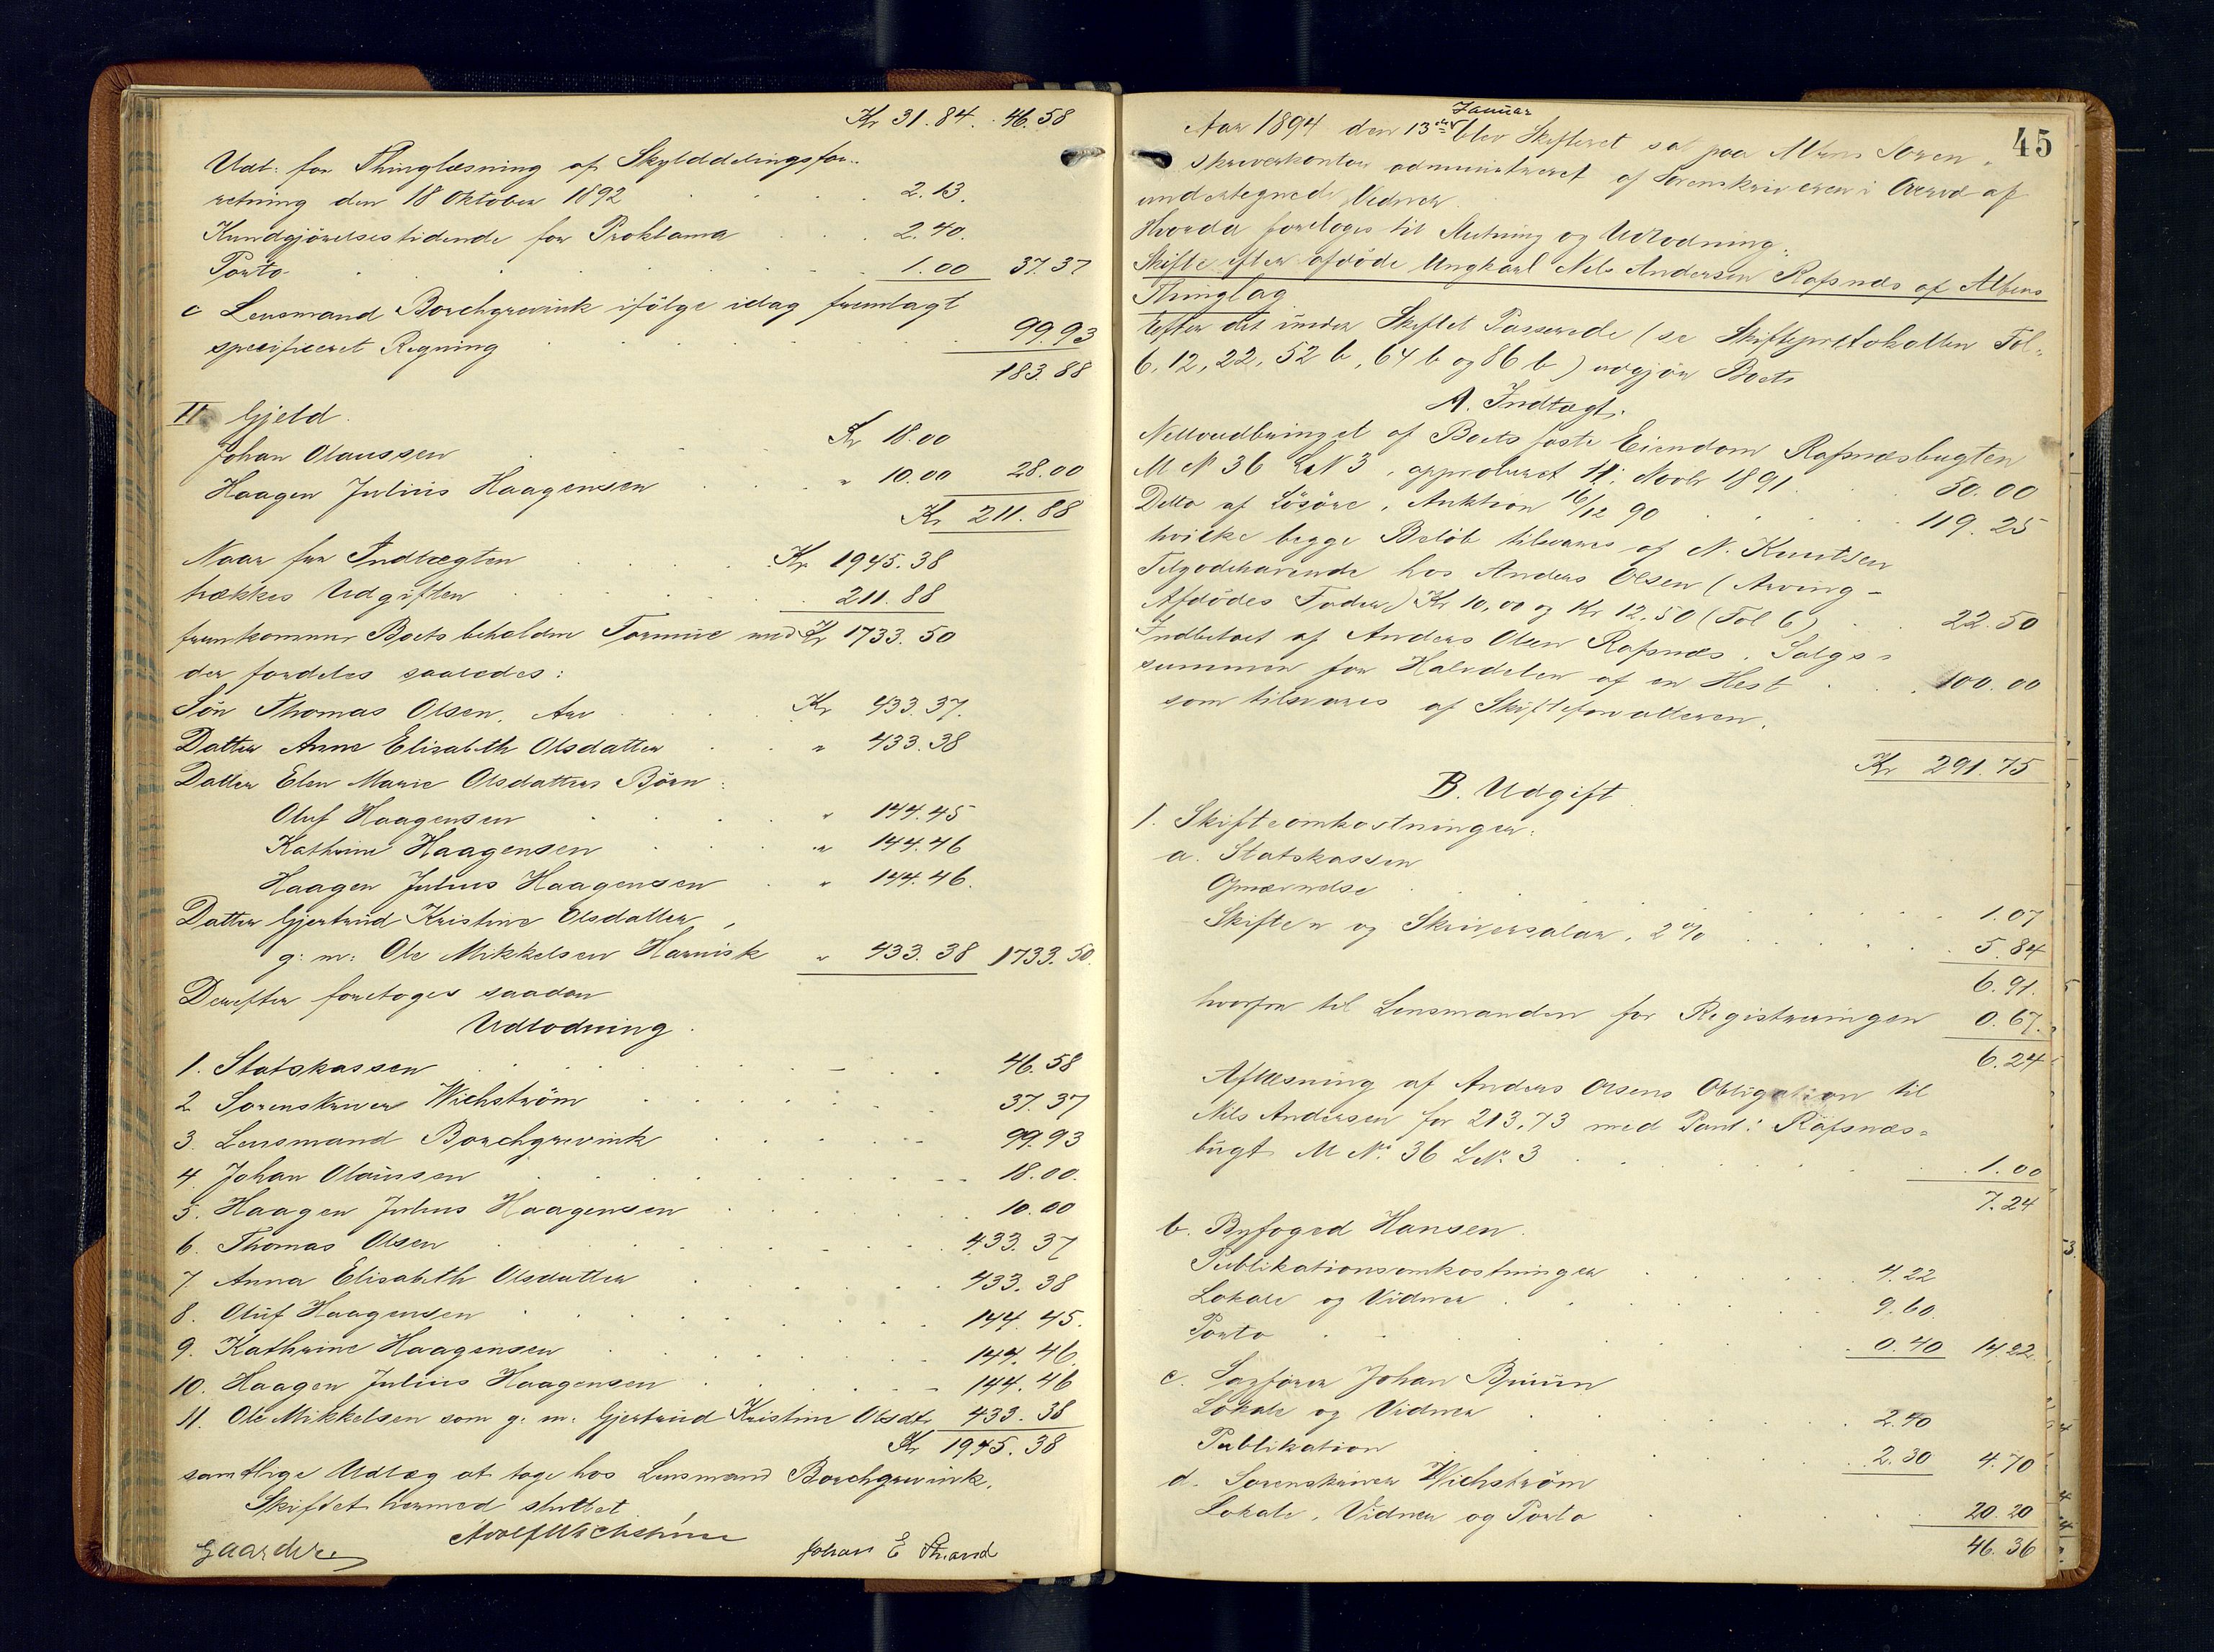 Kr 31.84. 46.58
Udl. for Thinglæsning af Skylddelingsfor-
retning den 18 Oktober 1892 2.13.
Kundgjørelsestidende for Proklama 2.40.
Porto 1.00 37.37
c Lensmand Borchgrevink ifølge idag fremlagt
specificeret Regning 99.93
183.88
II Gjeld.
Johan Olaussen Kr 18.00
Haagen Julius Haagensen " 10.00 28.00
Kr 211.88
Naar fra Indtægten Kr 1945.38
trækkes Udgiften 211.88
fremkommer Boets beholdne Formue med Kr 1733.50
der fordeles saaledes:
Søn Thomas Olsen, Arv Kr 433.37.
Datter Anne Elisabeth Olsdatter " 433.38
Datter Elen Marie Olsdatters Børn:
Oluf Haagensen " 144.45
Kathrine Haagensen " 144.46
Haagen Julius Haagensen " 144.46.
Datter Gjertrud Kristine Olsdatter,
g: m: Ole Mikkelsen Harnisk " 433.38 1733.50.
Derefter foretoges saadan
Udlodning.
1. Statskassen 46.58
2 Sorenskriver Wichstrøm 37.37
3. Lensmand Borchgrevink 99.93
4. Johan Olaussen 18.00.
5. Haagen Julius Haagensen 10.00
6. Thomas Olsen 433.37
7. Anna Elisabeth Olsdatter 433.38
8. Oluf Haagensen 144.45.
9. Kathrine Haagensen 144.46.
10. Haagen Julius Haagensen 144.46
11. Ole Mikkelsen som g: m: Gjertrud Kristine Olsdtr 433.38
Kr 1945.38
samtlige Udlæg at tage hos Lensmand Borchgrevink.
Skiftet hermed sluttet
Adolf Wichstrøm
Gaarder Johan E Strand
45
Januar
Aar 1894 den 13de blev Skifteret sat paa Altens Soren-
skriverkontor administreret af Sorenskriveren i Overvær af
undertegnede Vidner.
Hvorda foretoges til Slutning og Udlodning.
Skifte efter afdøde Ungkarl Nils Andersen Rafsnæs af Altens
Thinglag
Efter det under Skiftet Passerede (se Skifteprotokollen Fol.
6, 12, 22, 52 b, 64 b og 86 b) udgjør Boets
A. Indtægt.
Nettoudbringet af Boets faste Eiendom Rafsnæsbugten
M N 36 L N 3, approberet 11. Novbr 1891. 50.00
Ditto af Løsøre, Auktion 16/12 90 119.25
hvilke begge Beløb tilsvares af N. Knutsen
Tilgodehavende hos Anders Olsen (Arving -
Afdødes Fader) Kr 10,00 og Kr 12.50 (Fol 6) 22.50
Indbetalt af Anders Olsen Rafsnæs, Salgs-
summen for Halvdelen af en Hest 100.00
som tilsvares af Skifteforvalteren.
Kr 291.75
B. Udgift
1. Skifteomkostninger:
a. Statskassen
Opnævnelse 1.07
Skifte n og Skriversalær, 2% 5.84
6.91.
hvorfra til Lensmanden for Registreringen 0.67.
6.24
Aflæsning af Anders Olsens Obligation til
Nils Andersen for 213,73 med Pant i Rafsnæs-
bugt M No. 36 L No. 3 1.00
7.24
b. Byfoged Hansen.
Publikationsomkostninger 4.22
Lokale og Vidner 9.60.
Porto 0.40 14.22.
c. Sagfører Johan Bruun
Lokale og Vidner 2.40
Publikation 2.30 4.70
d. Sorenskriver Wichstrøm
Lokale, Vidner og Porto 20.20
46.36